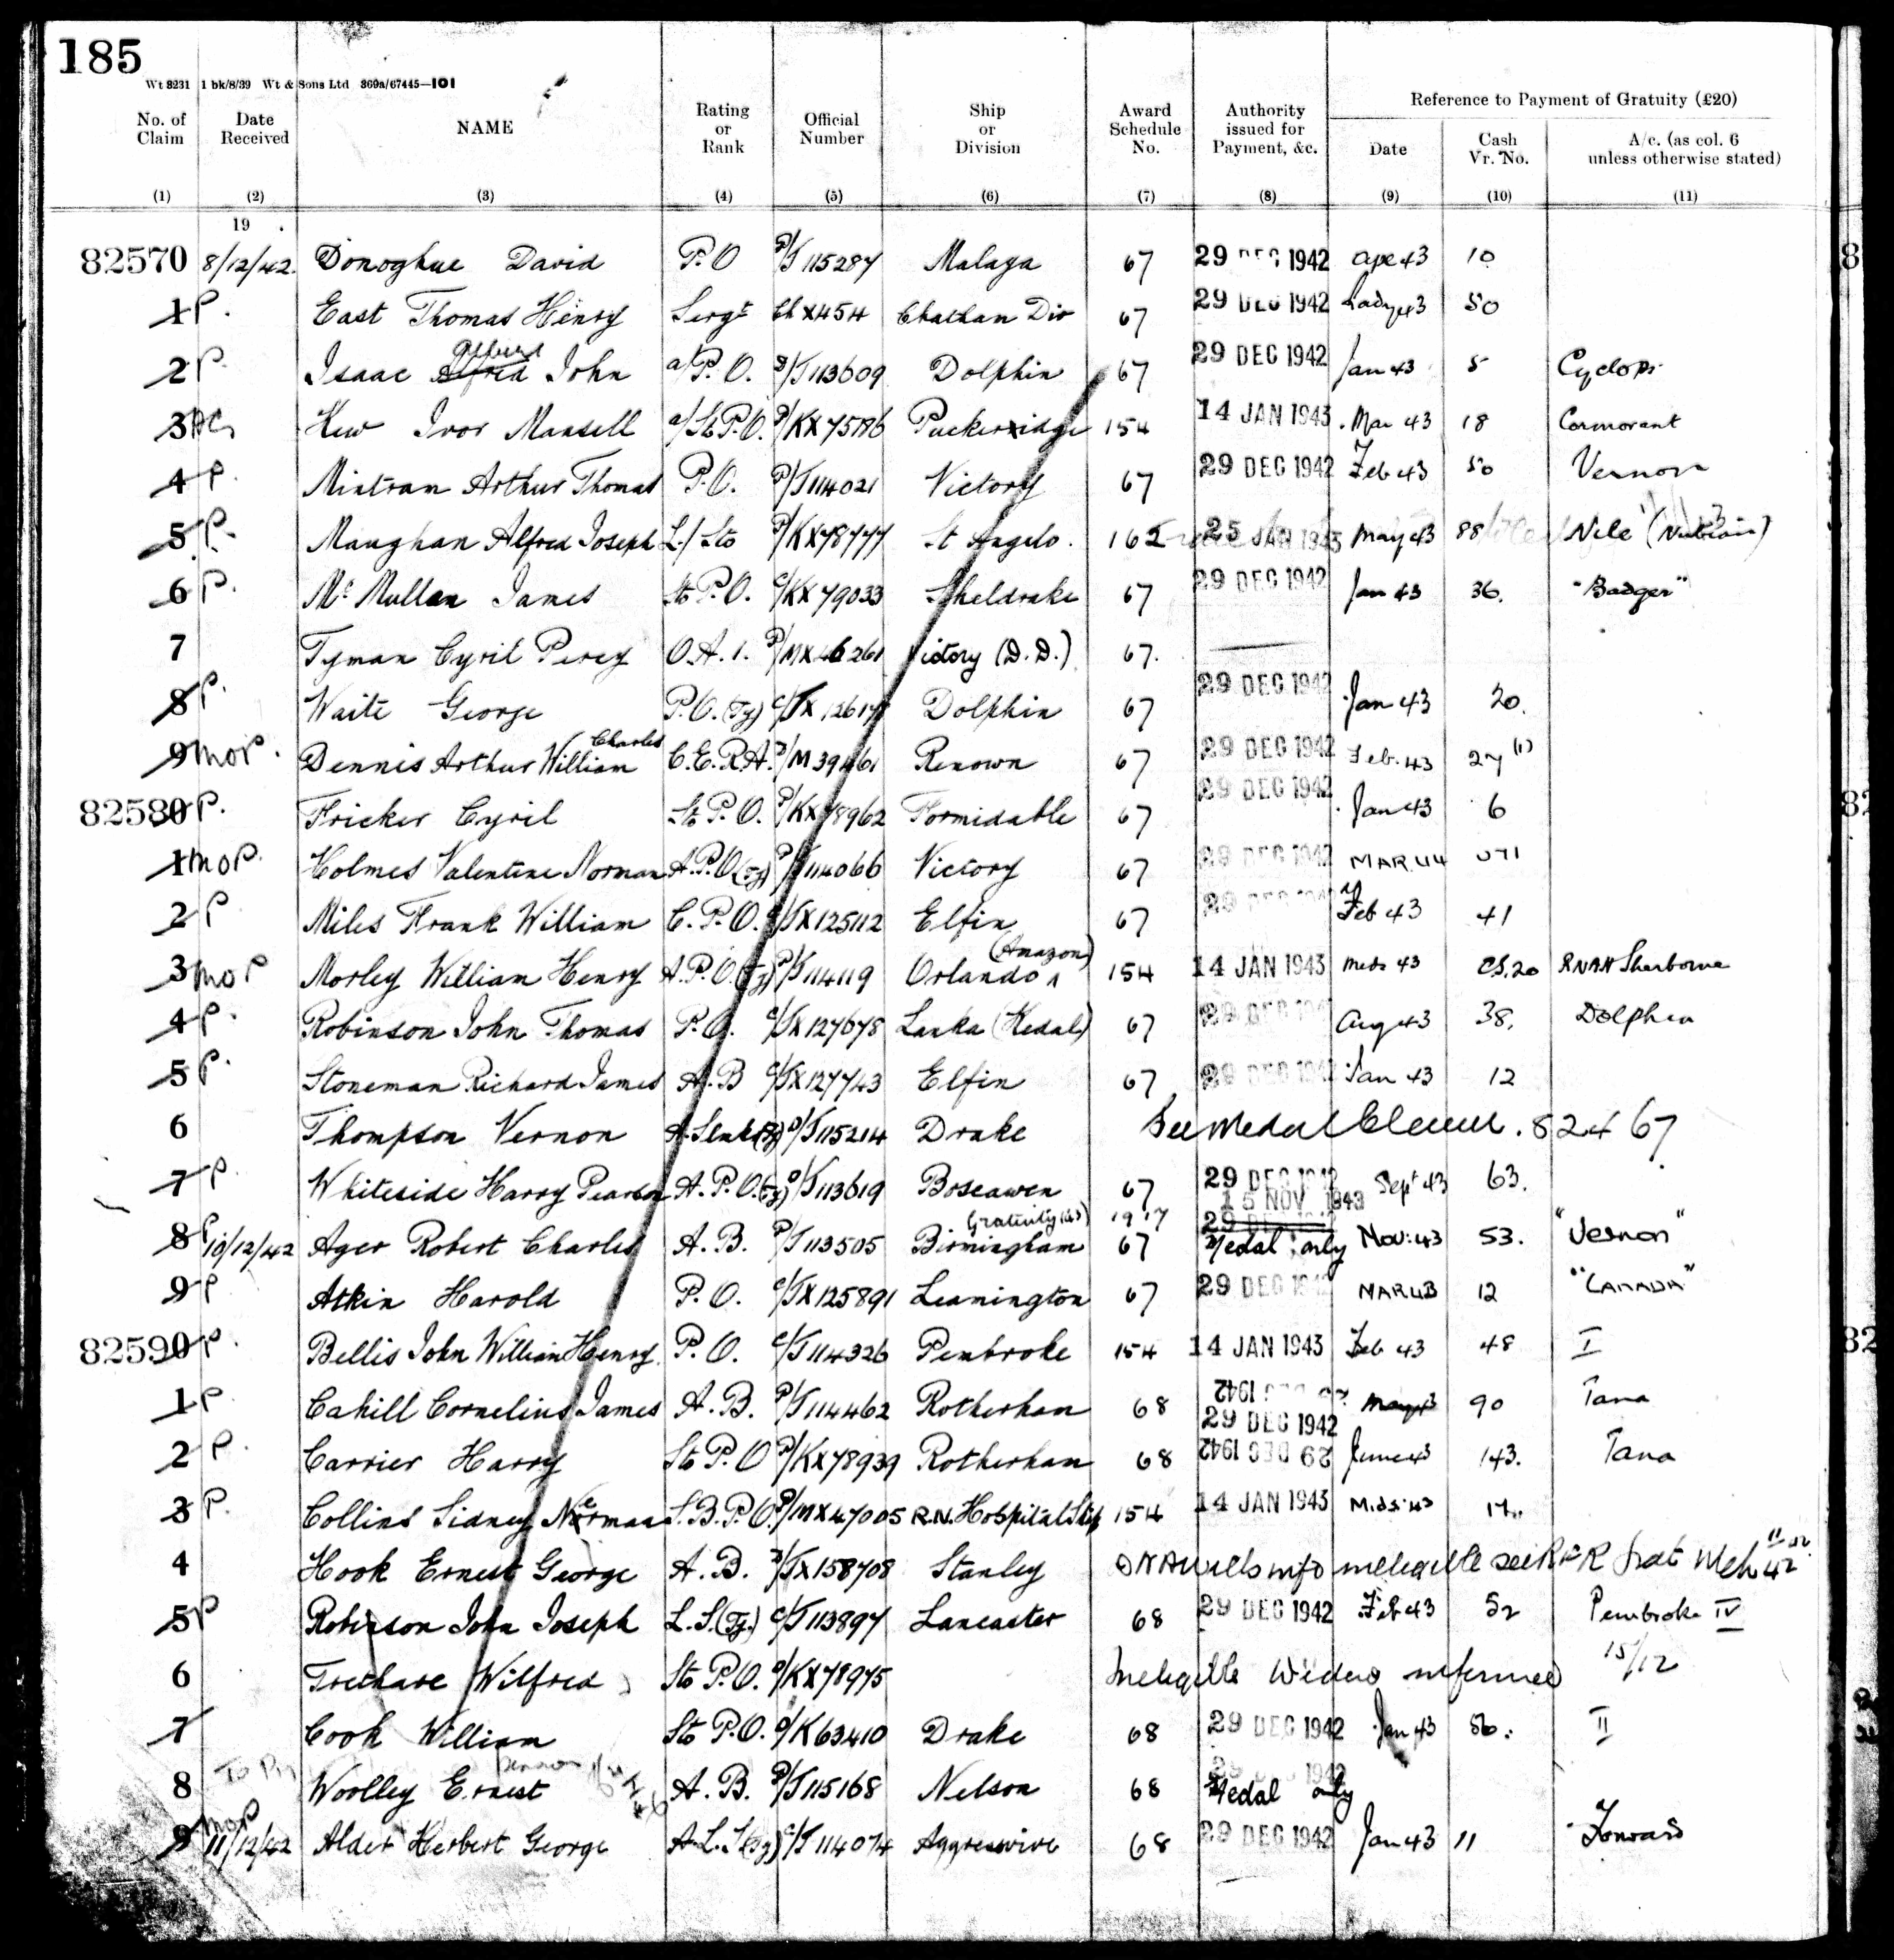 185
Wt 8231 1 bk/8/39 Wt & Sons Ltd 369a/67445—101
Reference to Payment of Gratuity (£20)
No. of Claim Date Received NAME Rating or Rank Official Number Ship or Division Award Schedule No. Authority issued for Payment, &c. Date Cash Vr. No. A/c. (as col. 6 unless otherwise stated)
(1) (2) (3) (4) (5) (6) (7) (8) (9) (10) (11)
19
82570 8/12/42. Donoghue David P.O P/J 115287 Malaga 67 29 DEC 1942 Ape 43 10
1 P. East Thomas Henry Sergt Ch X454 Chatham Div 67 29 DEC 1942 Lady 43 50
2 P. Isaac Alfred Albert John a/P.O. D/J113609 Dolphin 67 29 DEC 1942 Jan 43 5 Cyclops
3 Hew Ivor Mansell a/St P.O. P/KX75786 Puckeridge 154 14 JAN 1943 Mar 43 18 Cormorant
4 P. Mintram Arthur Thomas P.O. P/J114021 Victory 67 29 DEC 1942 Feb 43 50 Vernon
5 P. Maughan Alfred Joseph L/Sto P/KX78777 St Angelo. 162 25 JAN 1943 May 43 88 Nile (Nubian)
6 P. Mc Mullan James Sto P.O. C/KX79033 Sheldrake 67 29 DEC 1942 Jan 43 36. "Badger"
7 Tyman Cyril Percy O.A.1. P/MX46261 Victory (D.D.) 67.
8 P. Waite George P.O.(Ty) C/JX 126178 Dolphin 67 29 DEC 1942 Jan 43 20.
9 MOP. Dennis Arthur William Charles C.E.R.A. P/M39461 Renown 67 29 DEC 1942 Feb. 43 27 (1)
82580 P. Fricker Cyril Sto P.O. P/KX78962 Formidable 67 29 DEC 1942 Jan 43 6
1 MOP. Holmes Valentine Norman A.P.O(Ty) P/J114066 Victory 67 29 DEC 1942 MAR 44
2 P. Miles Frank William C.P.O. C/JX125112 Elfin 67 29 DEC Feb 43 41
3 MOP Morley William Henry A.P.O.(Ty) P/J114119 Orlando (Amazon) 154 14 JAN 1943 Meds 43 CS.20 RNAH Sherborne
4 P. Robinson John Thomas P.O. C/JX127678 Lanka (Kedah) 67 29 DEC Aug 43 38. Dolphin
5 P. Stoneman Richard James A.B C/JX127743 Elfin 67 29 DEC 1942 Jan 43 12
6 Thompson Vernon D/J115214 Drake See Medal Claim. 82467
7 P Whiteside Harry Pearson A.P.O.(Ty) D/J113619 Boscawen 67 29 DEC 1942 Sept 43 63.
Gratuity 1917 15 NOV 1943
8 P 10/12/42 Ager Robert Charles A.B. P/J113505 Birmingham 67 29 DEC Medal only Nov: 43 53. "Vernon"
9 P Atkin Harold P.O. C/JX125891 Leamington 67 29 DEC 1942 MAR 43 12 "CANADA"
82590 P. Bellis John William Henry. P.O. C/J114326 Pembroke 154 14 JAN 1943 Feb 43 48 I
1 P. Cahill Cornelius James A.B. P/J114462 Rotherham 68 29 DEC 1942 May 43 90 Tana
2 P. Carrier Harry Sto P.O P/KX78939 Rotherham 68 29 DEC 1942 June 43 143. Tana
3 P. Collins Sidney Norman S.B.P.O. P/MX47005 R.N. Hospital Ship 154 14 JAN 1943 Mids: 43 17.
4 Hook Ernest George A.B. D/JX158708 Stanley
5 P Robinson John Joseph L.S.(Ty.) C/J113897 Lancaster 68 29 DEC 1942 Feb 43 52 Pembroke IV
6 Trethare Wilfred Sto P.O. D/KX78975 Ineligible Widow informed 15/12
7 Cook William Sto P.O. D/K63410 Drake 68 29 DEC 1942 Jan 43 56: II
8 Woolley Ernest A.B. P/J115168 Nelson 68 Medal only
9 MOP 11/12/42 Alder Herbert George A.L.S(Ty) C/J114074 Aggressive 68 29 DEC 1942 Jan 43 11 Forward